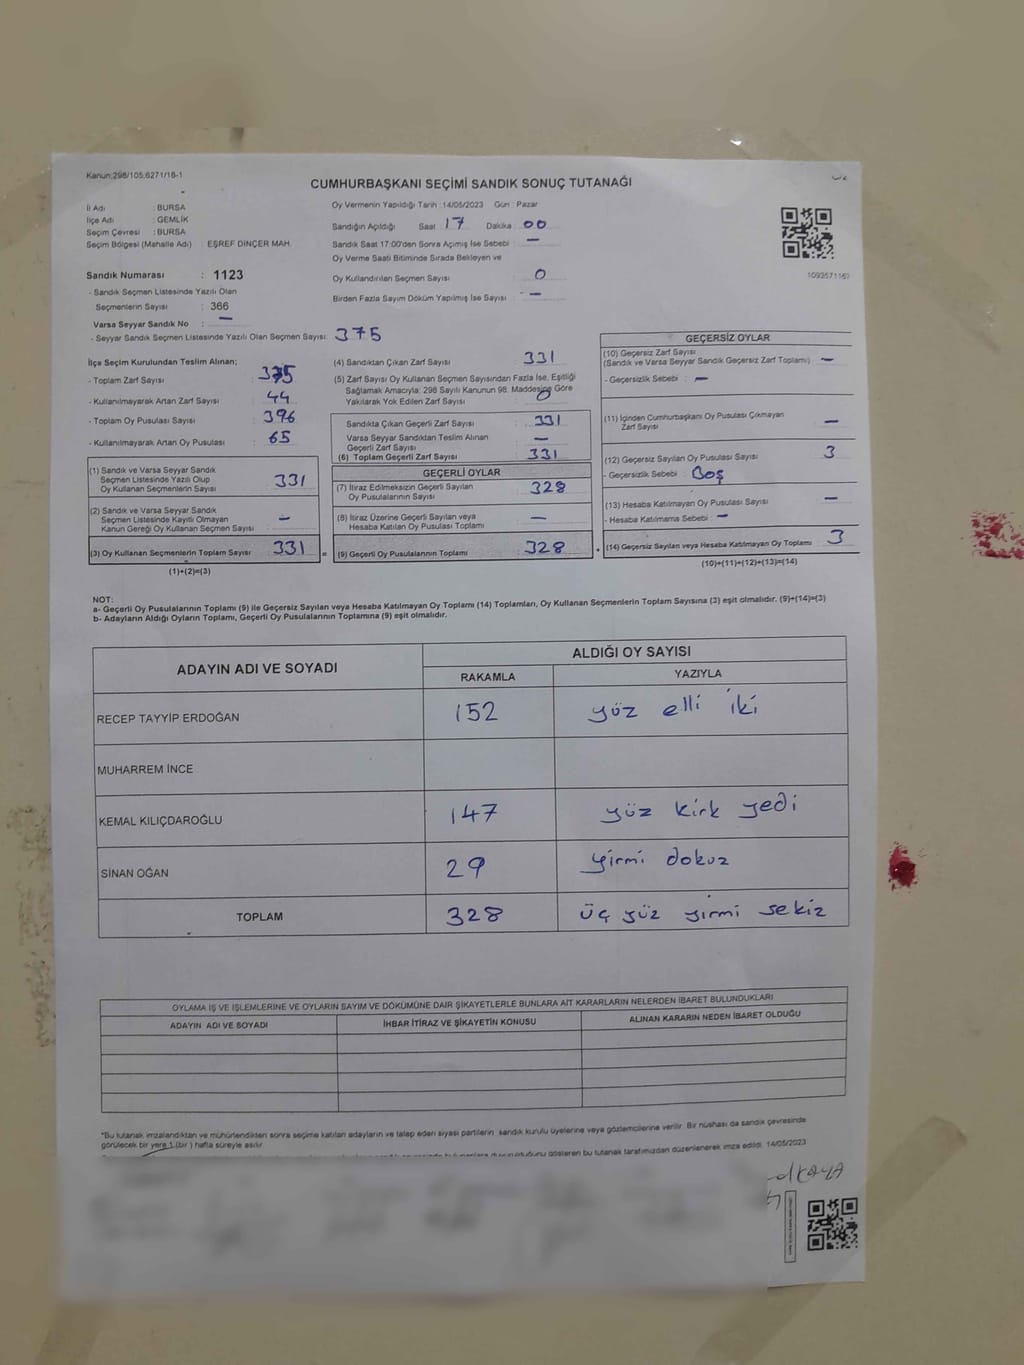 Kanun;298/105,6271/16-1
CUMHURBAŞKANI SEÇİMİ SANDIK SONUÇ TUTANAĞI
İl Adı : BURSA
İlçe Adı : GEMLİK
Seçim Çevresi : BURSA
Seçim Bölgesi (Mahalle Adı) : EŞREF DİNÇER MAH.
Sandık Numarası : 1123
- Sandık Seçmen Listesinde Yazılı Olan
Seçmenlerin Sayısı : 366
Varsa Seyyar Sandık No : –
- Seyyar Sandık Seçmen Listesinde Yazılı Olan Seçmen Sayısı: 375
Oy Vermenin Yapıldığı Tarih :14/05/2023 Gün : Pazar
Sandığın Açıldığı Saat 17 Dakika 00
Sandık Saat 17:00'den Sonra Açımış İse Sebebi : –
Oy Verme Saati Bitiminde Sırada Bekleyen ve
Oy Kullandırılan Seçmen Sayısı : 0
Birden Fazla Sayım Döküm Yapılmış İse Sayısı : –
İlçe Seçim Kurulundan Teslim Alınan;
- Toplam Zarf Sayısı : 375
- Kullanılmayarak Artan Zarf Sayısı : 44
- Toplam Oy Pusulası Sayısı : 396
- Kullanılmayarak Artan Oy Pusulası : 65
(1) Sandık ve Varsa Seyyar Sandık
Seçmen Listesinde Yazılı Olup
Oy Kullanan Seçmenlerin Sayısı : 331
(2) Sandık ve Varsa Seyyar Sandık
Seçmen Listesinde Kayıtlı Olmayan
Kanun Gereği Oy Kullanan Seçmen Sayısı : –
(3) Oy Kullanan Seçmenlerin Toplam Sayısı : 331 =
(1)+(2)=(3)
(4) Sandıktan Çıkan Zarf Sayısı : 331
(5) Zarf Sayısı Oy Kullanan Seçmen Sayısından Fazla İse, Eşitliği
Sağlamak Amacıyla; 298 Sayılı Kanunun 98. Maddesine Göre
Yakılarak Yok Edilen Zarf Sayısı : 0
Sandıkta Çıkan Geçerli Zarf Sayısı : 331
Varsa Seyyar Sandıktan Teslim Alınan
Geçerli Zarf Sayısı : –
(6) Toplam Geçerli Zarf Sayısı : 331
GEÇERLİ OYLAR
(7) İtiraz Edilmeksizin Geçerli Sayılan
Oy Pusulalarının Sayısı : 328
(8) İtiraz Üzerine Geçerli Sayılan veya
Hesaba Katılan Oy Pusulası Toplamı : –
(9) Geçerli Oy Pusulalarının Toplamı : 328 +
GEÇERSİZ OYLAR
(10) Geçersiz Zarf Sayısı
(Sandık ve Varsa Seyyar Sandık Geçersiz Zarf Toplamı) : –
- Geçersizlik Sebebi : –
(11) İçinden Cumhurbaşkanı Oy Pusulası Çıkmayan
Zarf Sayısı : –
(12) Geçersiz Sayılan Oy Pusulası Sayısı : 3
- Geçersizlik Sebebi : Boş
(13) Hesaba Katılmayan Oy Pusulası Sayısı : –
- Hesaba Katılmama Sebebi : –
(14) Geçersiz Sayılan veya Hesaba Katılmayan Oy Toplamı : 3
(10)+(11)+(12)+(13)=(14)
NOT:
a- Geçerli Oy Pusulalarının Toplamı (9) ile Geçersiz Sayılan veya Hesaba Katılmayan Oy Toplamı (14) Toplamları, Oy Kullanan Seçmenlerin Toplam Sayısına (3) eşit olmalıdır. (9)+(14)=(3)
b- Adayların Aldığı Oyların Toplamı, Geçerli Oy Pusulalarının Toplamına (9) eşit olmalıdır.
ADAYIN ADI VE SOYADI
ALDIĞI OY SAYISI
RAKAMLA YAZIYLA
RECEP TAYYİP ERDOĞAN 152 yüz elli iki
MUHARREM İNCE
KEMAL KILIÇDAROĞLU 147 yüz kırk yedi
SİNAN OĞAN 29 yirmi dokuz
TOPLAM 328 üç yüz yirmi sekiz
OYLAMA İŞ VE İŞLEMLERİNE VE OYLARIN SAYIM VE DÖKÜMÜNE DAİR ŞİKAYETLERLE BUNLARA AİT KARARLARIN NELERDEN İBARET BULUNDUKLARI
ADAYIN ADI VE SOYADI İHBAR İTİRAZ VE ŞİKAYETİN KONUSU ALINAN KARARIN NEDEN İBARET OLDUĞU
*Bu tutanak imzalandıktan ve mühürlendikten sonra seçime katılan adayların ve talep eden siyasi partilerin sandık kurulu üyelerine veya gözlemcilerine verilir. Bir nüshası da sandık çevresinde
görülecek bir yere 1 (bir) hafta süreyle asılır.
duyurulduğunu gösteren bu tutanak tarafımızdan düzenlenerek imza edildi. 14/05/2023